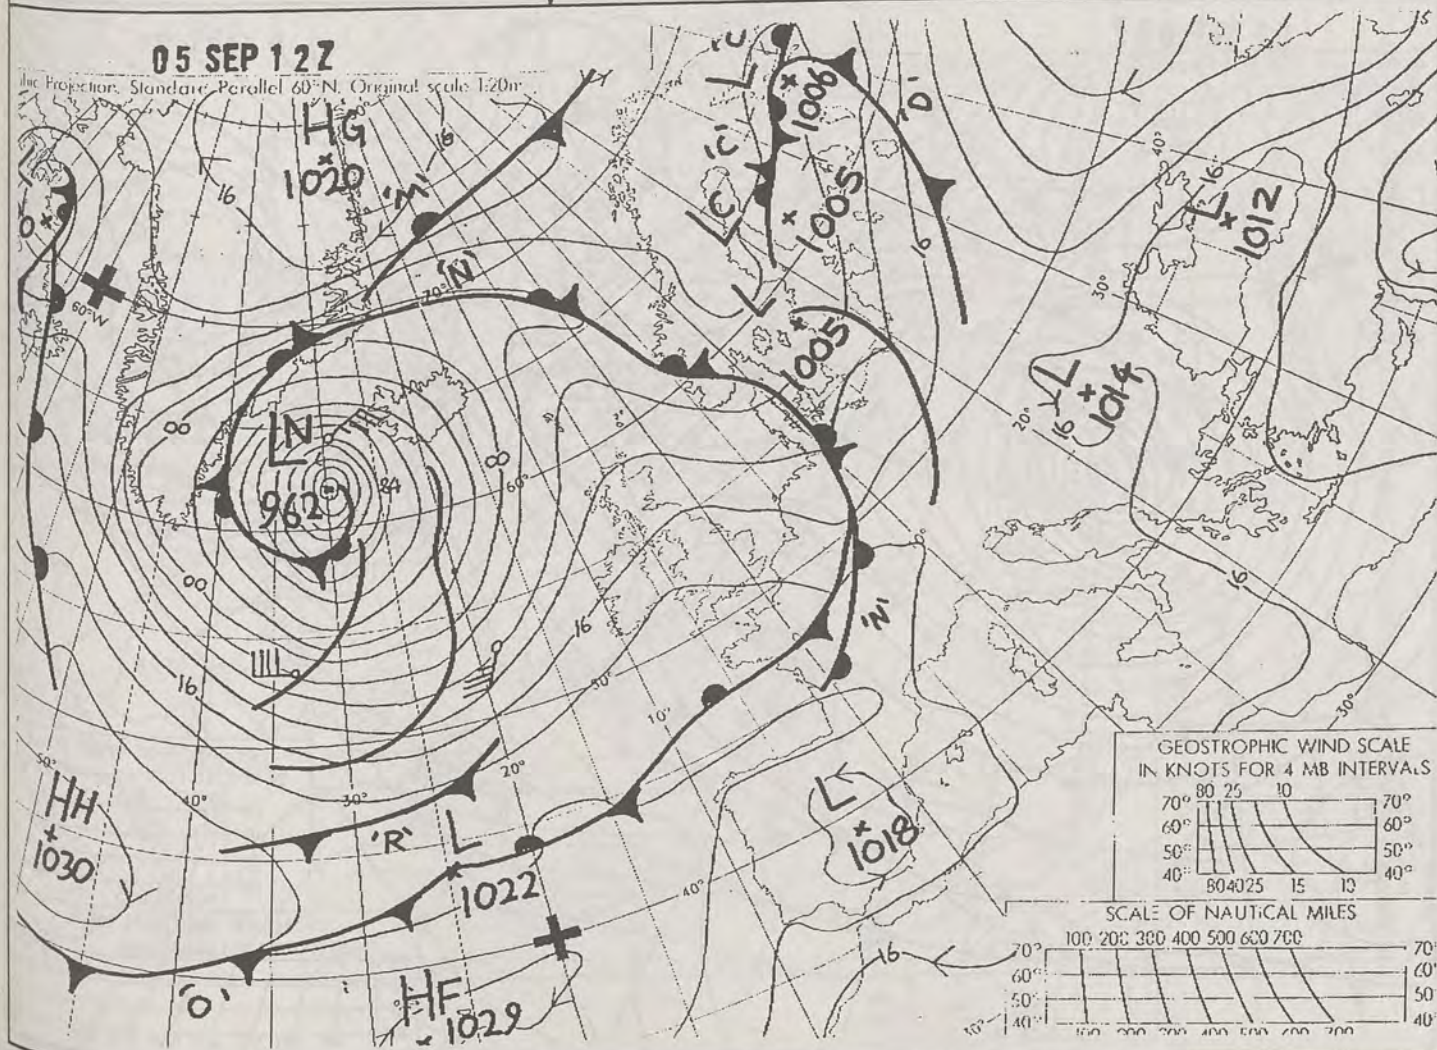 05 SEP 12Z
Projection, Standard Parallel 60°N. Original scale 1:20m
HG
1020
16
16
'M'
'N'
70°
60°W
'C'
LC
L
1006
1005
'D'
16
L
1005
40°
16
L
1012
30°
20°
L
1014
16
LN
962
84
00
00
00
60°
16
16
16
'N'
50°
10°
20°
30°
40°
50°
HH
1030
'R'
L
1022
'O'
HF
1029
40°
L
1018
16
30°
GEOSTROPHIC WIND SCALE
IN KNOTS FOR 4 MB INTERVALS
80 25 10
70° 70°
60° 60°
50° 50°
40° 40°
80 40 25 15 10
SCALE OF NAUTICAL MILES
100 200 300 400 500 600 700
70° 70°
60° 60°
50° 50°
40° 40°
100 200 300 400 500 600 700